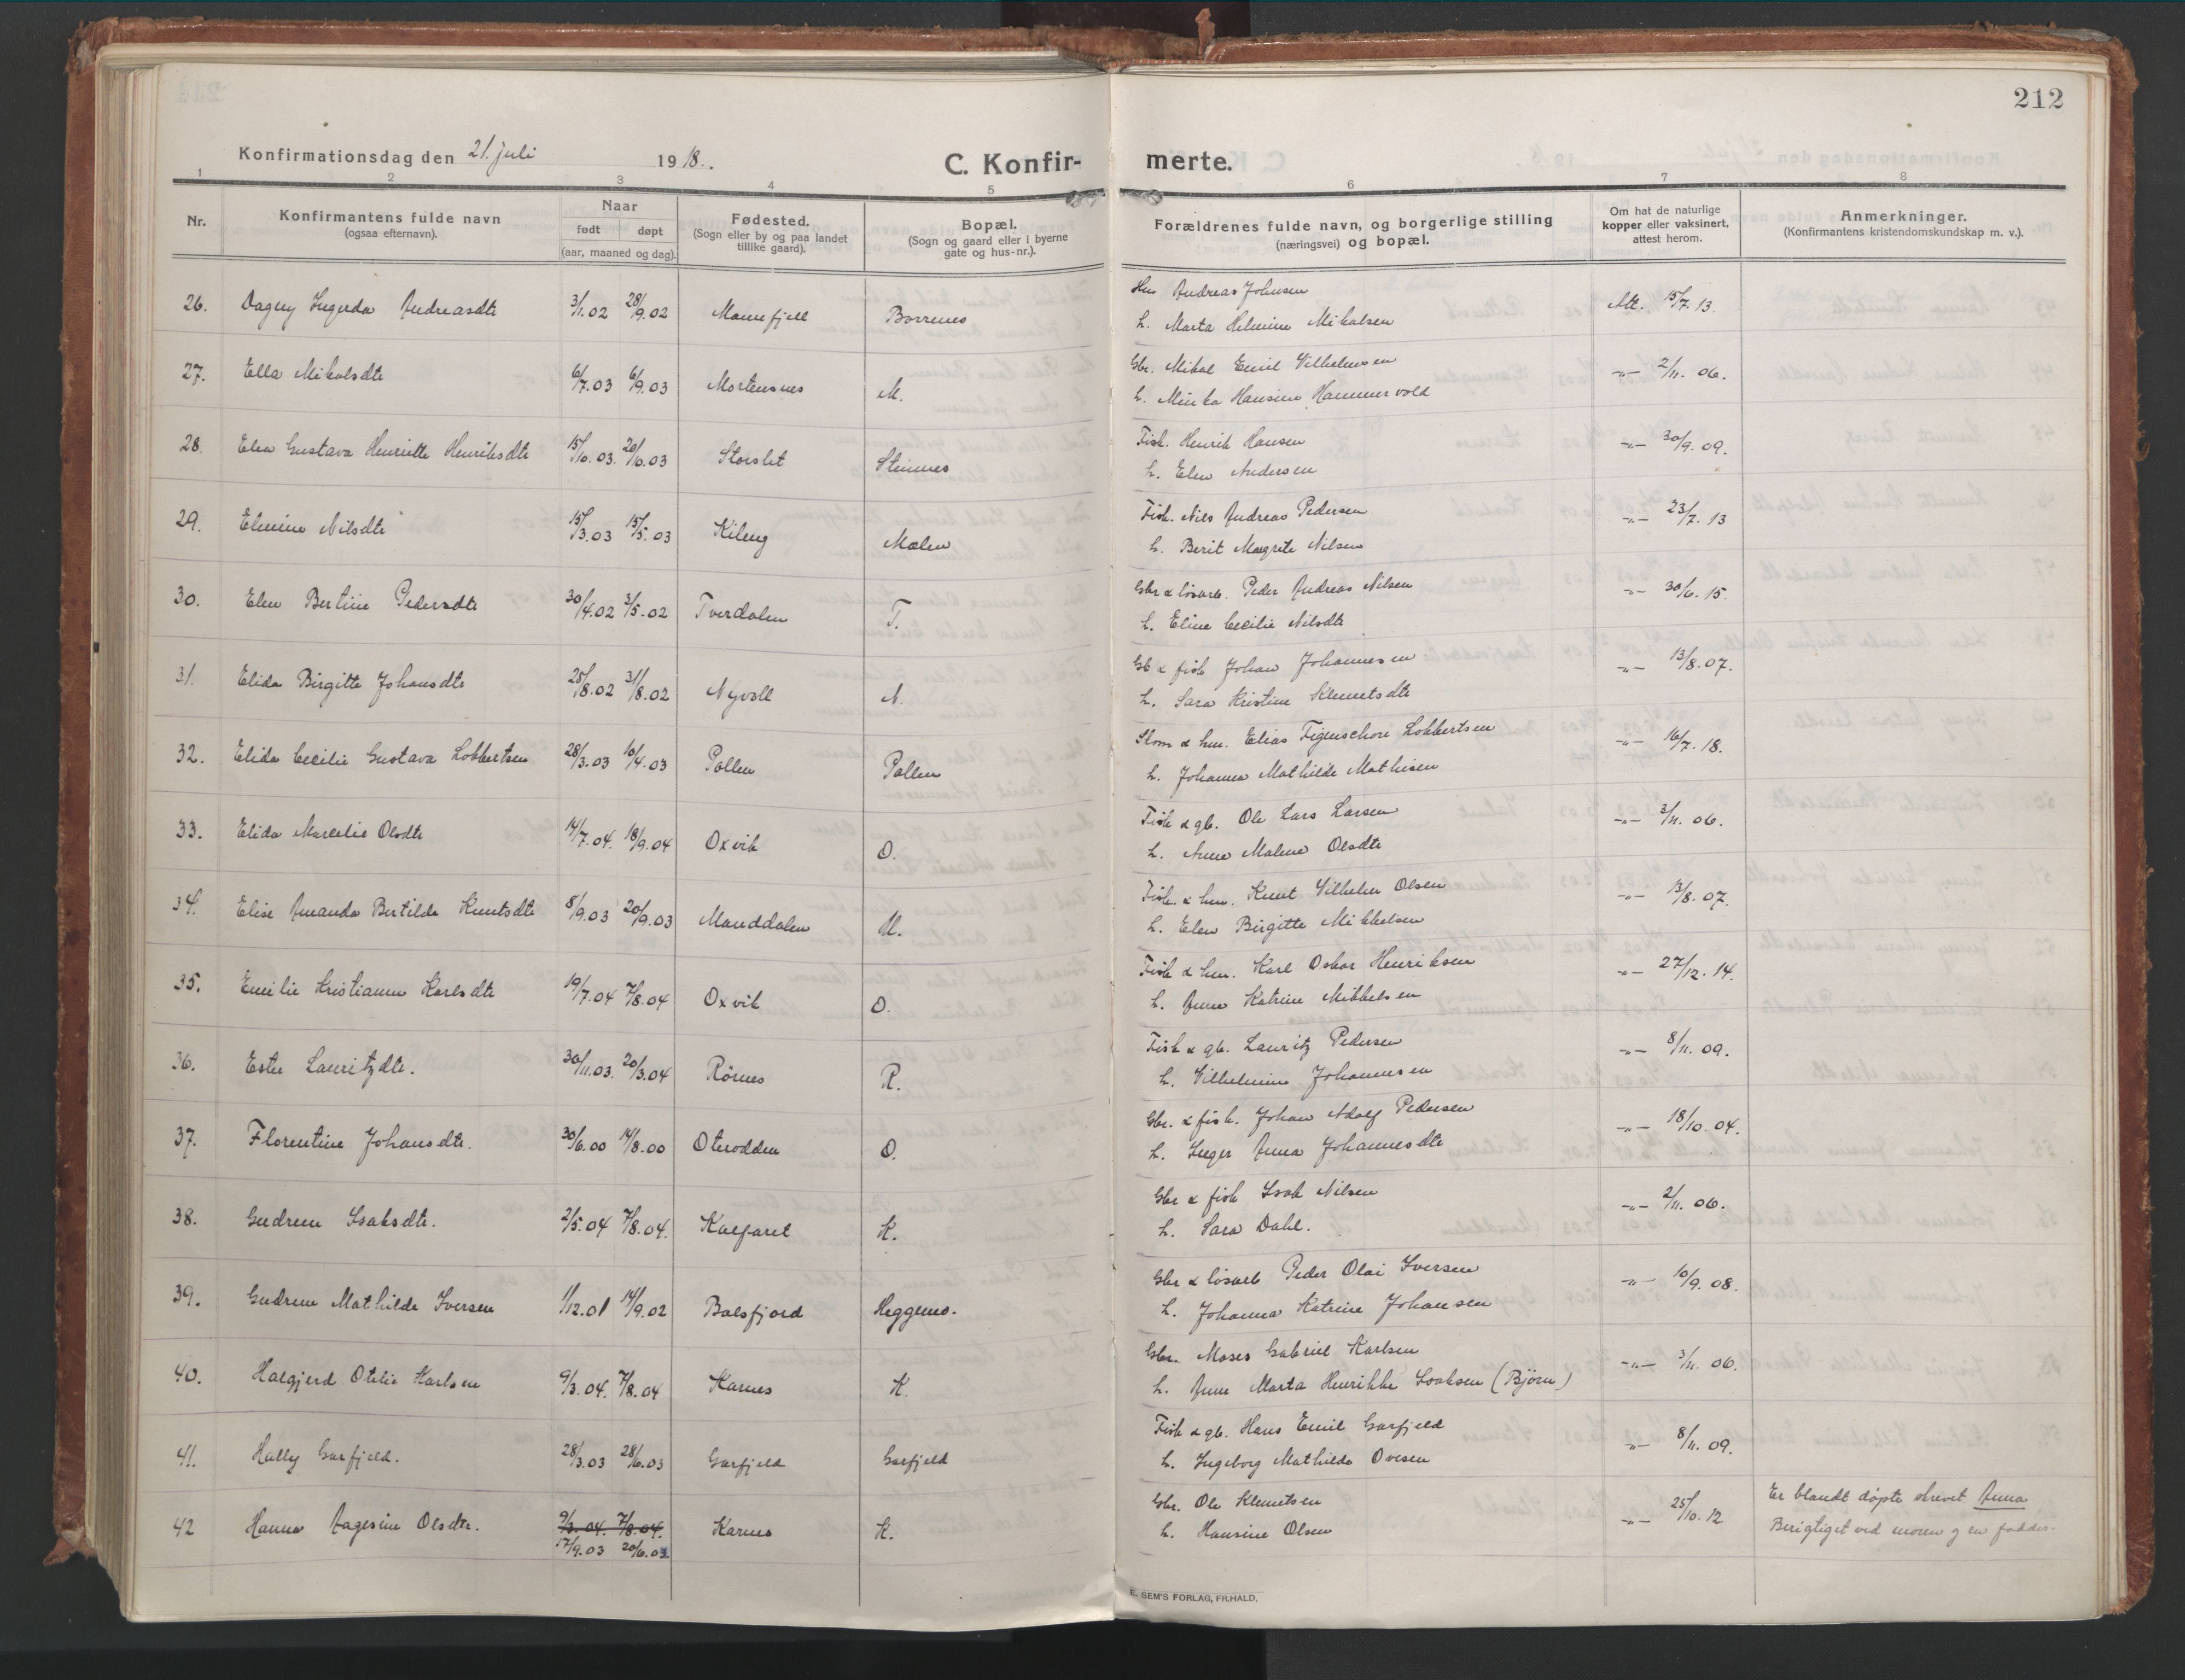 212
Konfirmationsdag den 21. juli 1918. C. Konfir- merte.
1 2 3 4 5 6 7 8
Nr. Konfirmantens fulde navn (ogsaa efternavn). Naar født døpt (aar, maaned og dag). Fødested. (Sogn eller by og paa landet tillike gaard). Bopæl. (Sogn og gaard eller i byerne gate og hus-nr.). Forældrenes fulde navn, og borgerlige stilling (næringsvei) og bopæl. Om hat de naturlige kopper eller vaksinert, attest herom. Anmerkninger. (Konfirmantens kristendomskundskap m. v.).
26. Dagny Andreasdtr 3/1.02 28/9.02 Mannfjell Borrenes Andreas Johnsen Att. 15/7.13.
h. Marta Helmine Mikalsen
27. Ella Mikalsdtr 6/7.03 6/9.03 Mortensnes M. Gbr. Mikal Emil Vilhelmsen -"- 2/11.06.
h. Minka Hansine Hammervold
28. Elen Gustava Henriette Henriksdtr 15/6.03. 20/6.03 Storslet Steinnes Fisk. Henrik Hansen -"- 30/9.09.
h. Elen Andersen
29. Elmine Nilsdtr 15/3.03 15/5.03 Kileng Målen Fisk. Nils Andreas Pedersen -"- 23/7.13
h. Berit Margrete Nilsen
30. Elen Bertine Pedersdtr 30/4.02 3/5.02 Tverdalen T. Gbr & løsarb. Peder Andreas Nilsen -"- 30/6.15.
h. Eline Cecilie Nilsdtr
31. Elida Birgitte Johansdtr 25/8.02 31/8.02 Nyvoll N. Gb & fisk Johan Johannesen -"- 13/8.07.
h. Sara Kristine Klemetsdtr
32. Elida Cecilie Gustava Lobbertsen 28/3.03 10/4.03 Pollen Pollen Skom & hm. Elias Figenschou Lobbertsen -"- 16/7.18.
h. Johanna Mathilde Mathisen
33. Elida Marcelie Olsdtr 14/7.04. 18/9.04 Oxvik O. Fisk & gb. Ole Lars Larsen -"- 3/11.06.
h. Anna Malene Olsdtr
34. Elise Amanda Bertilde Knutsdtr 8/9.03 20/9.03 Manddalen M. Fisk. & hm. Knut Vilhelm Olsen -"- 13/8.07.
h. Elen Birgitte Mikkelsen
35. Emilie Kristianna Karlsdtr 19/7.04 7/8.04 Oxvik O. Fisk & hm. Karl Oskar Henriksen -"- 27/12.14.
h. Anna Katrine Mikkelsen
36. Ester Lauritzdtr. 30/11.03. 20/3.04 Rörnes R. Fisk & gb. Lauritz Pedersen -"- 8/11.09.
h. Vilhelmine Johannesen
37. Florentine Johansdtr. 30/6.00 14/8.00 Oterodden O. Gbr. & fisk. Johan Adolf Pedersen -"- 18/10.04.
h. Inger Anna Johannesdtr
38. Gudrun Isaksdtr. 2/5.04 7/8.04. Kalfaret K. Gbr & fisk Isak Nilsen -"- 2/11.06.
h. Sara Dahl.
39. Gudrun Mathilde Iversen 1/12.01 14/9.02 Balsfjord Heggemo. Gbr & løsarb Peder Olai Iversen -"- 10/9.08.
h. Johanna Katrine Johansen
40. Halgjerd Otelie Karlsen 9/3.04. 7/8.04 Karnes K. Gbr. Moses Gabriel Karlsen -"- 3/11.06.
h. Anne Marta Henrikke Isaksen (Bjørn)
41. Hally Garfjeld. 28/3.03 28/6.03 Garfjeld Garfjeld Fisk & gb. Hans Emil Garfjeld -"- 8/11.09.
h. Ingeborg Mathilde Ovesen
42 Hanna Aagesine Olsdtr. 9/3.04. 7/8.04. Karnes K. Gbr. Ole Klemetsen -"- 25/10.12 Er blandt døpte skrevet Anna
17/9.03 20/6.03. h. Hansine Olsen Berigtiget ved moren og en fadder.
E. SEM'S FORLAG, FR.HALD.